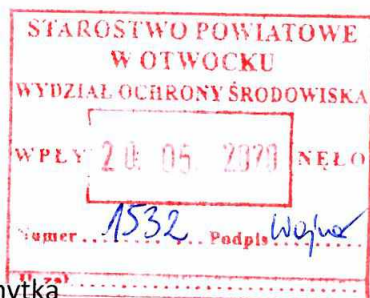 STAROSTWO POWIATOWE
W OTWOCKU
WYDZIAŁ OCHRONY ŚRODOWISKA
WPŁY 20. 05. 2020 NĘŁO
Numer 1532 Podpis Wojna
nytka